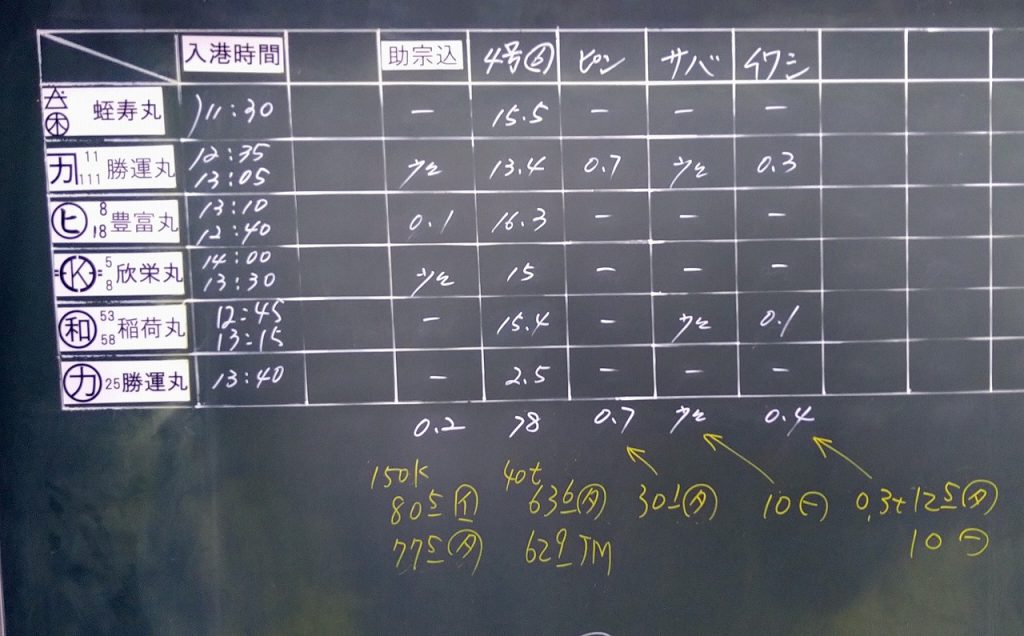 入港時間 助宗込 4号 ピン サバ イワシ
木 蛭寿丸 11:30 － 15.5 － － －
カ 11 111 勝運丸 12:35 13:05 少々 13.4 0.7 少々 0.3
ヒ 8 18 豊富丸 13:10 12:40 0.1 16.3 － － －
K 5 8 欣栄丸 14:00 13:30 少々 15 － － －
和 53 58 稲荷丸 12:45 13:15 － 15.4 － 少々 0.1
カ 25 勝運丸 13:40 － 2.5 － － －
0.2 78 0.7 少々 0.4
150K 40t
805 636 301 10 0.3t 125
775 629 TM 10